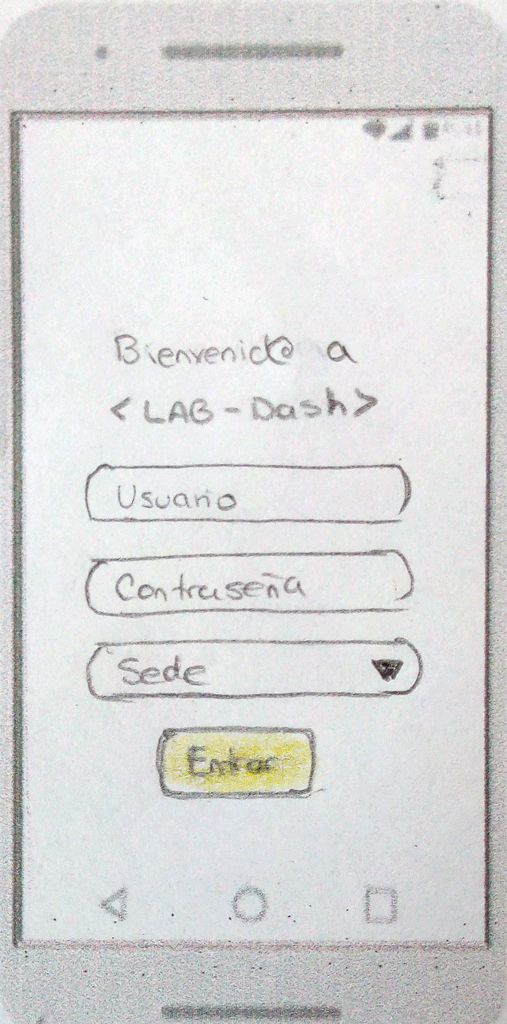 Bienvenid@ a
<LAB-Dash>
Usuario
Contraseña
Sede
Entrar